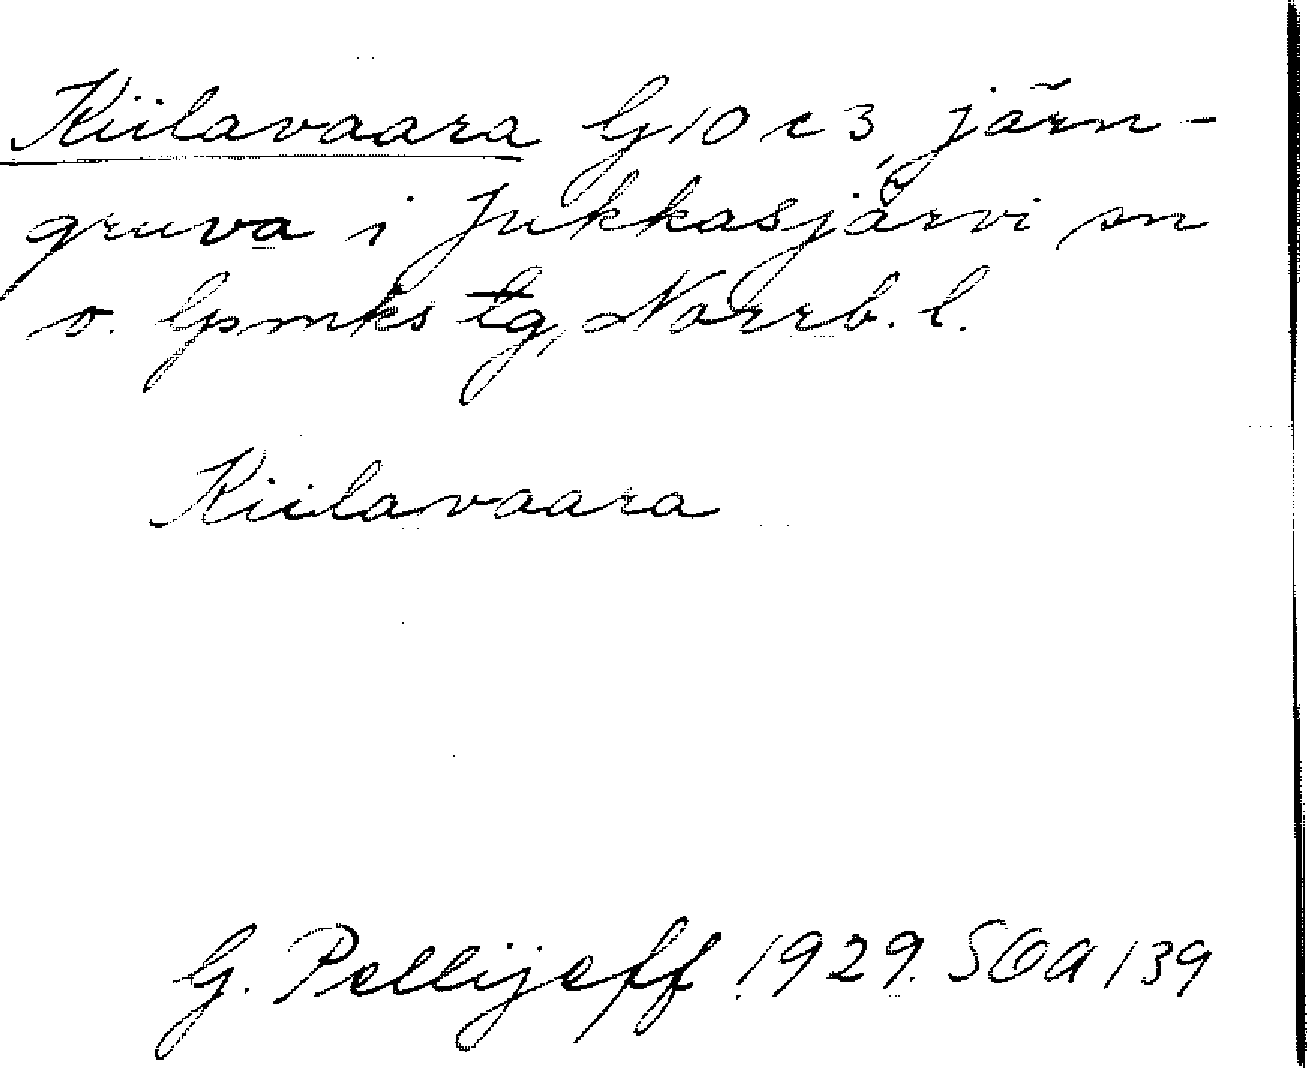 Kiilavaara G10c3, järn-
gruva i Jukkasjärvi sn
o. Gpmks tg, Norrb. l.
Kiilavaara
G. Pellijeff 1929. SOA 139